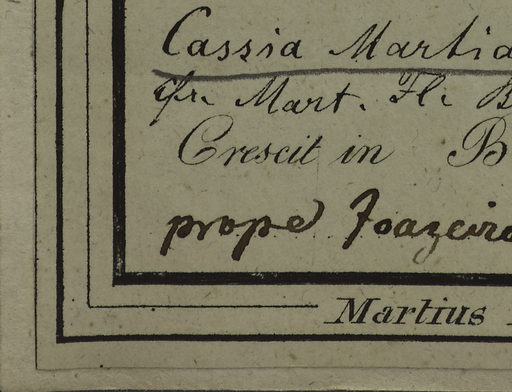 Cassia Martia
Mart. Fl. B
Crescit in B
prope Joazeiro
Martius